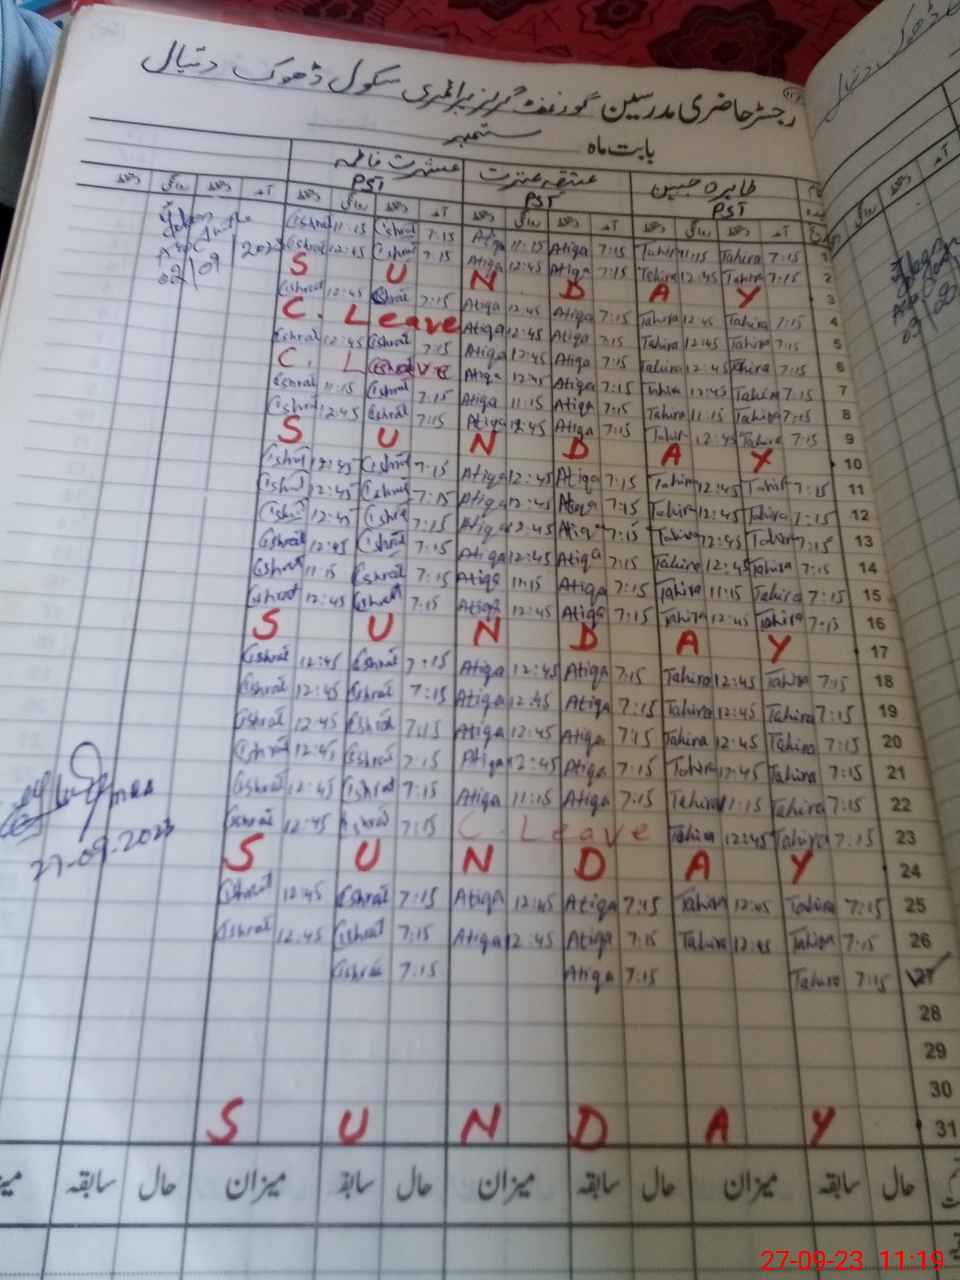 رجسٹر حاضری مدرسین گورنمنٹ گرلز پرائمری سکول ڈھوک دتیال
بابت ماہ ستمبر
طاہرہ جبین عتیقہ عترت عشرت فاطمہ
PST PST PST
آمد دستخط روانگی دستخط آمد دستخط روانگی دستخط آمد دستخط روانگی دستخط آمد دستخط روانگی دستخط
Eshrat 11:15 Eshrat 7:15 Atiqa 11:15 Atiqa 7:15 Tahira 11:15 Tahira 7:15 1
Eshrat 12:45 Eshrat 7:15 Atiqa 12:45 Atiqa 7:15 Tahira 12:45 Tahira 7:15 2
02/09 2023
S U N D A Y 3
Eshrat 12:45 Eshrat 7:15 Atiqa 12:45 Atiqa 7:15 Tahira 12:45 Tahira 7:15 4
C. Leave Atiqa 12:45 Atiqa 7:15 Tahira 12:45 Tahira 7:15 5
Eshrat 12:45 Eshrat 7:15 Atiqa 12:45 Atiqa 7:15 Tahira 12:45 Tahira 7:15 6
C. L Atiqa 12:45 Atiqa 7:15 Tahira 12:45 Tahira 7:15 7
Eshrat 11:15 Eshrat 7:15 Atiqa 11:15 Atiqa 7:15 Tahira 11:15 Tahira 7:15 8
Eshrat 12:45 Eshrat 7:15 Atiqa 12:45 Atiqa 7:15 Tahira 12:45 Tahira 7:15 9
S U N D A Y 10
Eshrat 12:45 Eshrat 7:15 Atiqa 12:45 Atiqa 7:15 Tahira 12:45 Tahira 7:15 11
Eshrat 12:45 Eshrat 7:15 Atiqa 12:45 Atiqa 7:15 Tahira 12:45 Tahira 7:15 12
Eshrat 12:45 Eshrat 7:15 Atiqa 12:45 Atiqa 7:15 Tahira 12:45 Tahira 7:15 13
Eshrat 12:45 Eshrat 7:15 Atiqa 12:45 Atiqa 7:15 Tahira 12:45 Tahira 7:15 14
Eshrat 11:15 Eshrat 7:15 Atiqa 11:15 Atiqa 7:15 Tahira 11:15 Tahira 7:15 15
Eshrat 12:45 Eshrat 7:15 Atiqa 12:45 Atiqa 7:15 Tahira 12:45 Tahira 7:15 16
S U N D A Y 17
Eshrat 12:45 Eshrat 7:15 Atiqa 12:45 Atiqa 7:15 Tahira 12:45 Tahira 7:15 18
Eshrat 12:45 Eshrat 7:15 Atiqa 12:45 Atiqa 7:15 Tahira 12:45 Tahira 7:15 19
Eshrat 12:45 Eshrat 7:15 Atiqa 12:45 Atiqa 7:15 Tahira 12:45 Tahira 7:15 20
Eshrat 12:45 Eshrat 7:15 Atiqa 12:45 Atiqa 7:15 Tahira 12:45 Tahira 7:15 21
Eshrat 12:45 Eshrat 7:15 Atiqa 11:15 Atiqa 7:15 Tahira 11:15 Tahira 7:15 22
Eshrat 12:45 Eshrat 7:15 C. Leave Tahira 12:45 Tahira 7:15 23
27-09-2023
S U N D A Y 24
Eshrat 12:45 Eshrat 7:15 Atiqa 12:45 Atiqa 7:15 Tahira 12:45 Tahira 7:15 25
Eshrat 12:45 Eshrat 7:15 Atiqa 12:45 Atiqa 7:15 Tahira 12:45 Tahira 7:15 26
Eshrat 7:15 Atiqa 7:15 Tahira 7:15 27
28
29
30
S U N D A Y 31
حال سابقہ میزان حال سابقہ میزان حال سابقہ میزان حال سابقہ
27-09-23 11:19